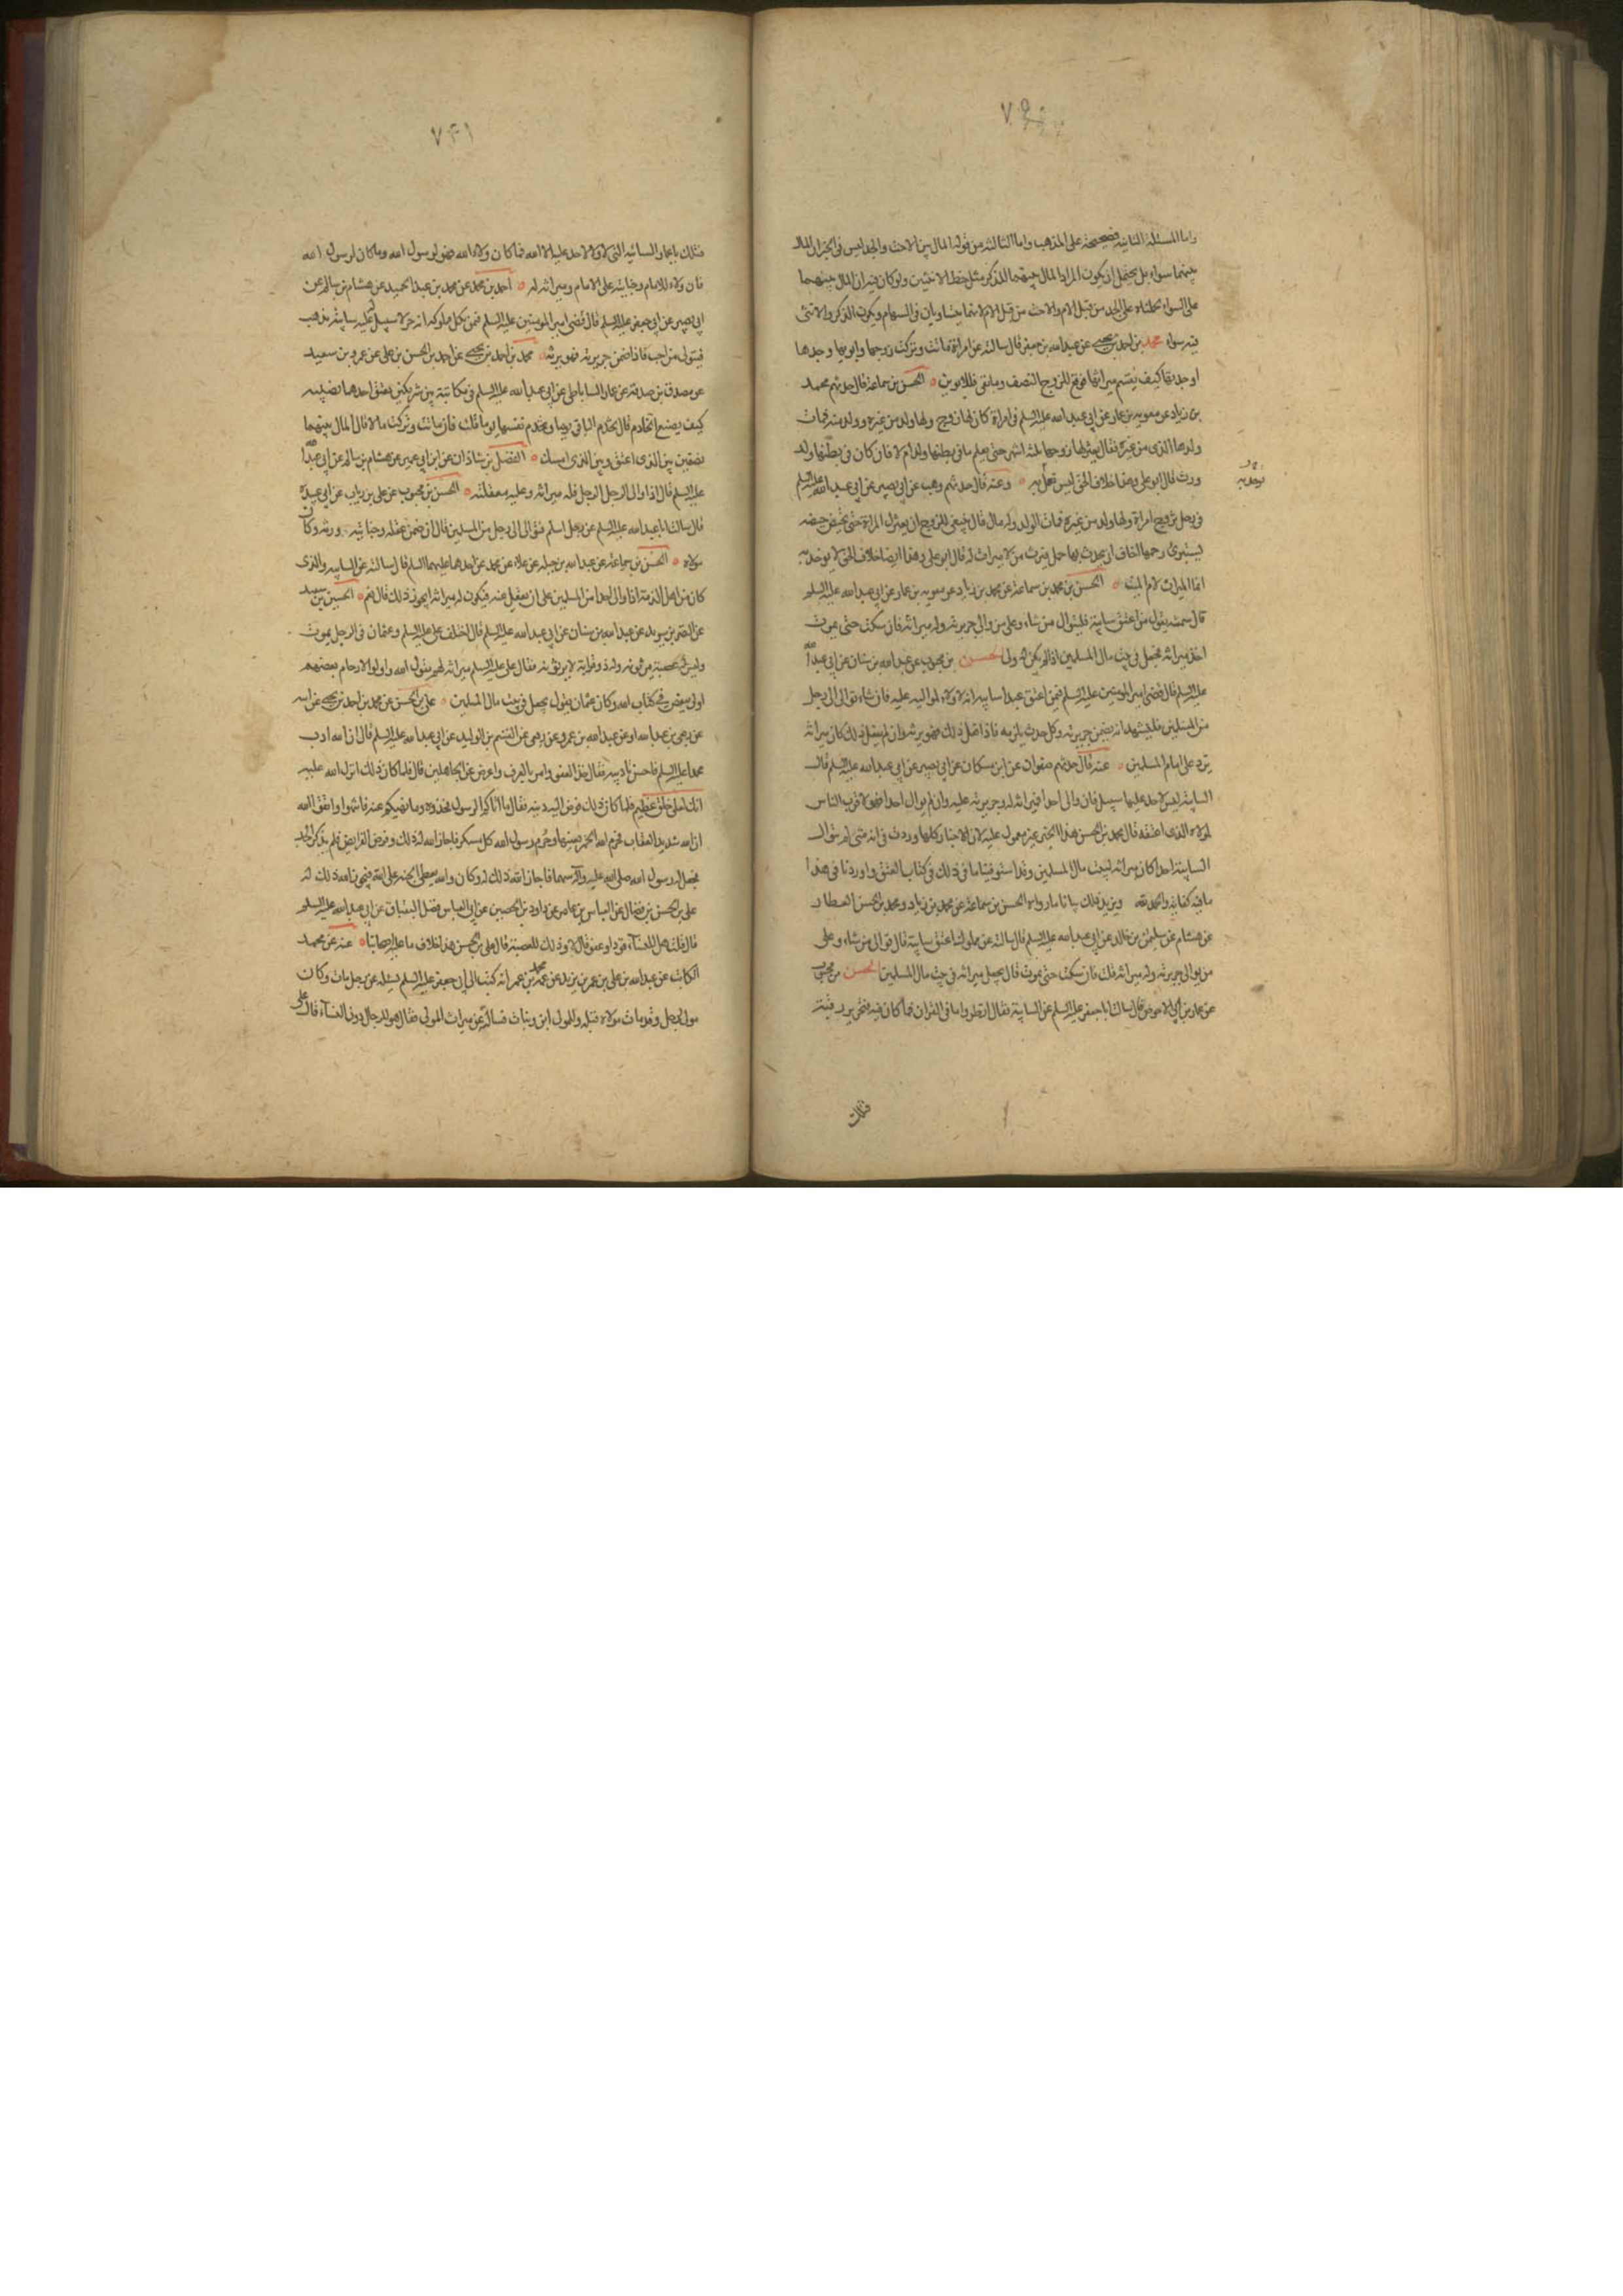 واما المسئلة الثانية فصحيحة على المذهب واما الثالثة من قوله المال بين الاخت والجد ليس في الخبر ان المال
بينهما سواء بل يحتمل ان يكون المراد المال بينهما للذكر مثل حظ الانثيين ولو كان فيه ان المال بينهما
على السواء لحملناه على الجد من قبل الام والاخت من قبل الام لانهما يتساويان في السهام ويكون الذكر والانثى
فيه سواء محمد بن احمد بن يحيى عن عبد الله بن جعفر قال سالته عن امراة ماتت وتركت زوجها وابويها وجدها
او جدتها كيف يقسم ميراثها فوقع للزوج النصف وما بقي فللابوين الحسن بن سماعة قال حدثهم محمد
بن زياد عن معوية بن عمار عن ابي عبد الله عليه السلم في امراة كان لها زوج ولها ولد من غيره وولد منه فمات
ولدها الذي من غيره فقال يعتزلها زوجها ثلثة اشهر حتى يعلم ما في بطنها ولد ام لا فان كان في بطنها ولد
ورث قال ابو علي وهذا خلاف الحق ليس نعمل به وعنه قال حدثهم وهيب عن ابي بصير عن ابي عبد الله عليه السلم
في رجل تزوج امراة ولها ولد من غيره فمات الولد وله مال قال ينبغي للزوج ان يعتزل المراة حتى تحيض حيضة
ليستبرئ رحمها اخاف ان يحدث بها حمل فيرث من لا ميراث له قال ابو علي وهذا ايضا خلاف الحق لا يوخذ به
انما الميراث لام الميت الحسن بن محمد بن سماعة عن محمد بن زياد عن معوية بن عمار عن ابي عبد الله عليه السلم
قال سمعته يقول من اعتق سايبة فليتوال من شاء وعلى من والى جريرته وله ميراثه فان سكت حتى يموت
اخذ ميراثه فجعل في بيت مال المسلمين اذا لم يكن له ولى الحسن بن محبوب عن عبد الله بن سنان عن ابي عبد الله
عليه السلم قال قضى امير المومنين عليه السلم فيمن اعتق عبدا سايبة انه لا ولاء لمواليه عليه فان شاء توالى الى رجل
من المسلمين فليشهد انه يضمن جريرته وكل حدث يلزمه فاذا فعل ذلك فهو يرثه وان لم يفعل ذلك كان ميراثه
يرد على امام المسلمين عنه قال حدثهم صفوان عن ابن مسكان عن ابي بصير عن ابي عبد الله عليه السلم قال
السايبة ليس لاحد عليها سبيل فان والى احدا فميراثه له وجريرته عليه وان لم يوال احدا فهو لاقرب الناس
لمولاه الذي اعتقه قال محمد بن الحسن هذا الخبر غير معمول عليه لان الاخبار كلها وردت في انه متى لم يتوال
السايبة احدا كان ميراثه لبيت مال المسلمين وقد استوفينا ما في ذلك في كتاب العتق واوردنا في هذا
ما فيه كفاية والحمد لله ويزيد ذلك بيانا ما رواه الحسن بن سماعة عن محمد بن زياد ومحمد بن الحسن العطار
عن هشام عن سليمن بن خالد عن ابي عبد الله عليه السلم قال سالته عن مملوك اعتق سايبة قال يتوالى من شاء وعلى
من يوالي جريرته وله ميراثه قلت فان سكت حتى يموت قال يجعل ميراثه في بيت مال المسلمين الحسن بن محبوب
عن عمار بن ابي الاحوص قال سالت ابا جعفر عليه السلم عن السايبة فقال انظروا ما في القران فما كان فيه فتحرير رقبة
فتلك
٧٤١
فتلك يا عمار السائبة التي لا ولاء لاحد عليه الا الله فما كان ولاه الله فهو لرسول الله وما كان لرسول الله
فان ولاه للامام وجنايته على الامام وميراثه له احمد بن محمد عن محمد بن عبد الحميد عن هشام بن سالم عن
ابي بصير عن ابي جعفر عليه السلم قال قضى امير المومنين عليه السلم فيمن نكل مملوكه انه حر لا سبيل له عليه سايبة يذهب
فيتولى من احب فاذا ضمن جريرته فهو يرثه محمد بن احمد بن يحيى عن احمد بن الحسن بن علي عن عمرو بن سعيد
عن مصدق بن صدقة عن عمار الساباطي عن ابي عبد الله عليه السلم في مكاتبة بين شريكين يعتق احدهما نصيبه
كيف يصنع الخادم قال يخدم الباقي يوما ويخدم نفسها يوما قلت فان ماتت وتركت مالا قال المال بينهما
نصفين بين الذي اعتق وبين الذي امسك الفضل بن شاذان عن ابن ابي عمير عن هشام بن سالم عن ابي عبد الله
عليه السلم قال اذا والى الرجل الرجل فله ميراثه وعليه معقلته الحسن بن محبوب عن علي بن رياب عن ابي عبيدة
قال سالت ابا عبد الله عليه السلم عن رجل اسلم فتوالى الى رجل من المسلمين قال ان ضمن عقله وجنايته ورثه وكان
مولاه الحسن بن سماعة عن عبد الله بن جبلة عن علاء عن محمد عن احدهما عليهما السلم قال سالته عن السايبة والذي
كان من اهل الذمة اذا والى احدا من المسلمين على ان يعقل عنه فيكون له ميراثه ايجوز ذلك قال نعم الحسين بن سعيد
عن النضر بن سويد عن عبد الله بن سنان عن ابي عبد الله عليه السلم قال اختلف علي عليه السلم وعثمان في الرجل يموت
وليس له عصبة يرثونه وله ذو قرابة لا يرثونه فقال علي عليه السلم ميراثه لهم يقول الله واولوا الارحام بعضهم
اولى ببعض في كتاب الله وكان عثمان يقول يجعل في بيت مال المسلمين علي بن الحسن عن محمد بن احمد بن يحيى عن ابيه
عن ربعي بن عبد الله او عن عبد الله بن عمرو عن ربعي عن القسم بن الوليد عن ابي عبد الله عليه السلم قال ان الله ادب
محمدا عليه السلم فاحسن تاديبه فقال خذ العفو وامر بالعرف واعرض عن الجاهلين قال فلما كان ذلك انزل الله عليه
انك لعلى خلق عظيم فلما كان ذلك فوض اليه دينه فقال ما اتاكم الرسول فخذوه وما نهيكم عنه فانتهوا واتقوا الله
ان الله شديد العقاب فحرم الله الخمر بعينها وحرم رسول الله كل مسكر فاجاز الله له ذلك وفرض الفرايض فلم يذكر الجد
فجعل له رسول الله صلى الله عليه وآله سهما فاجاز الله ذلك له وكان والله يعطي الجنة على الله فيجوز الله ذلك له
علي بن الحسن بن فضال عن العباس بن عامر عن داود بن الحصين عن ابي العباس فضل البقباق عن ابي عبد الله عليه السلم
قال قلت هل للنساء قود او عفو قال لا وذلك للعصبة قال علي بن الحسن هذا خلاف ما عليه اصحابنا عنه عن محمد
الكاتب عن عبد الله بن علي بن عمر بن يزيد عن عمه محمد بن عمر انه كتب الى ابي جعفر عليه السلم يسئله عن رجل مات وكان
مولى لرجل وقد مات مولاه قبله وللمولى ابن وبنات فسالته عن ميراث المولى فقال هو للرجال دون النساء قال علي